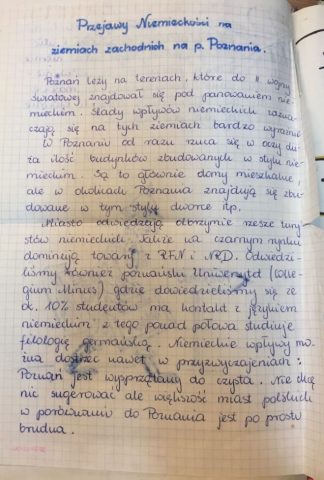 Przejawy Niemieckości na
ziemiach zachodnich na p. Poznania.
Poznań leży na terenach, które do II wojny
światowej znajdował się pod panowaniem nie-
mieckim. Ślady wpływów niemieckich zazna-
czają się na tych ziemiach bardzo wyraźnie
W Poznaniu od razu rzuca się w oczy du-
ża ilość budynków zbudowanych w stylu nie-
mieckim. Są to głównie domy mieszkalne,
ale w okolicach Poznania znajdują się zbu-
dowane w tym stylu dworce itp.
Miasto odwiedzają olbrzymie rzesze tury-
stów niemieckich. Także na czarnym rynku
dominują towary z RFN i NRD. Odwiedzi-
liśmy również poznański Uniwersytet (Colle-
gium Minus) gdzie dowiedzieliśmy się że
ok. 10% studentów ma kontakt z językiem
niemieckim z tego ponad połowa studiuje
filologię germańską. Niemieckie wpływy mo-
żna dostrzec nawet w przyzwyczajeniach:
Poznań jest wysprzątany do czysta. Nie chcę
nic sugerować ale większość miast polskich
w porównaniu do Poznania jest po prostu
brudna.